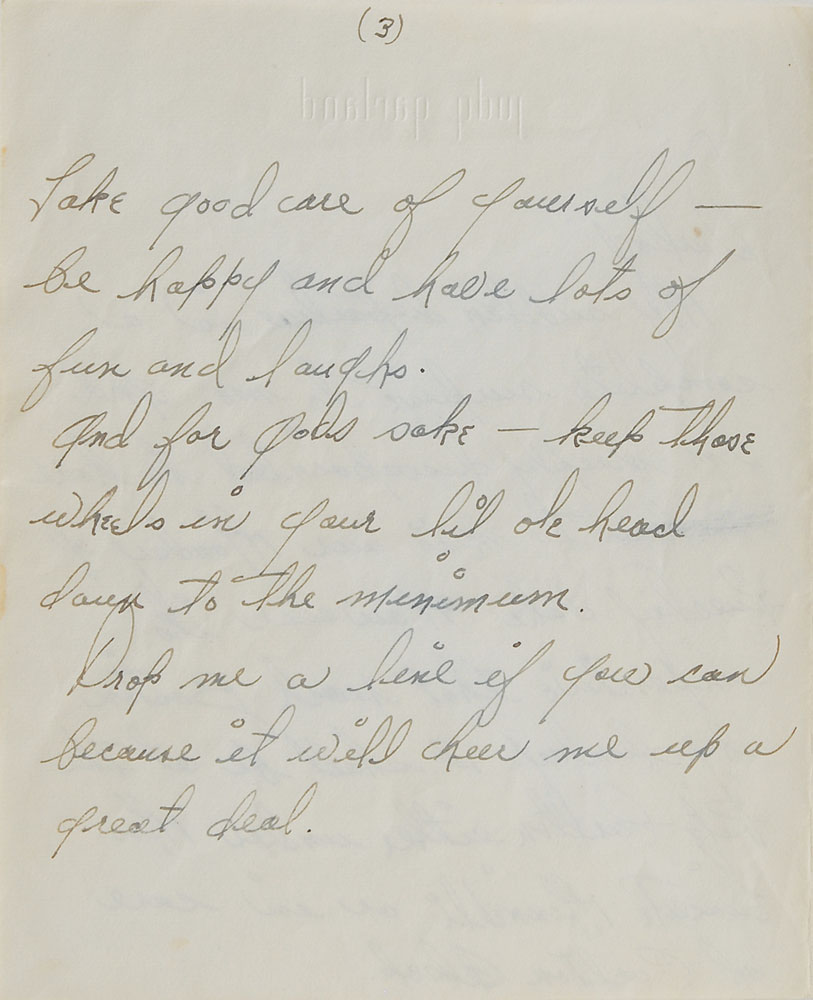 (3)
judy garland
Take good care of yourself —
be happy and have lots of
fun and laughs.
And for Gods sake — keep those
wheels in your lil ole head
down to the minimum.
Drop me a line if you can
because it will cheer me up a
great deal.